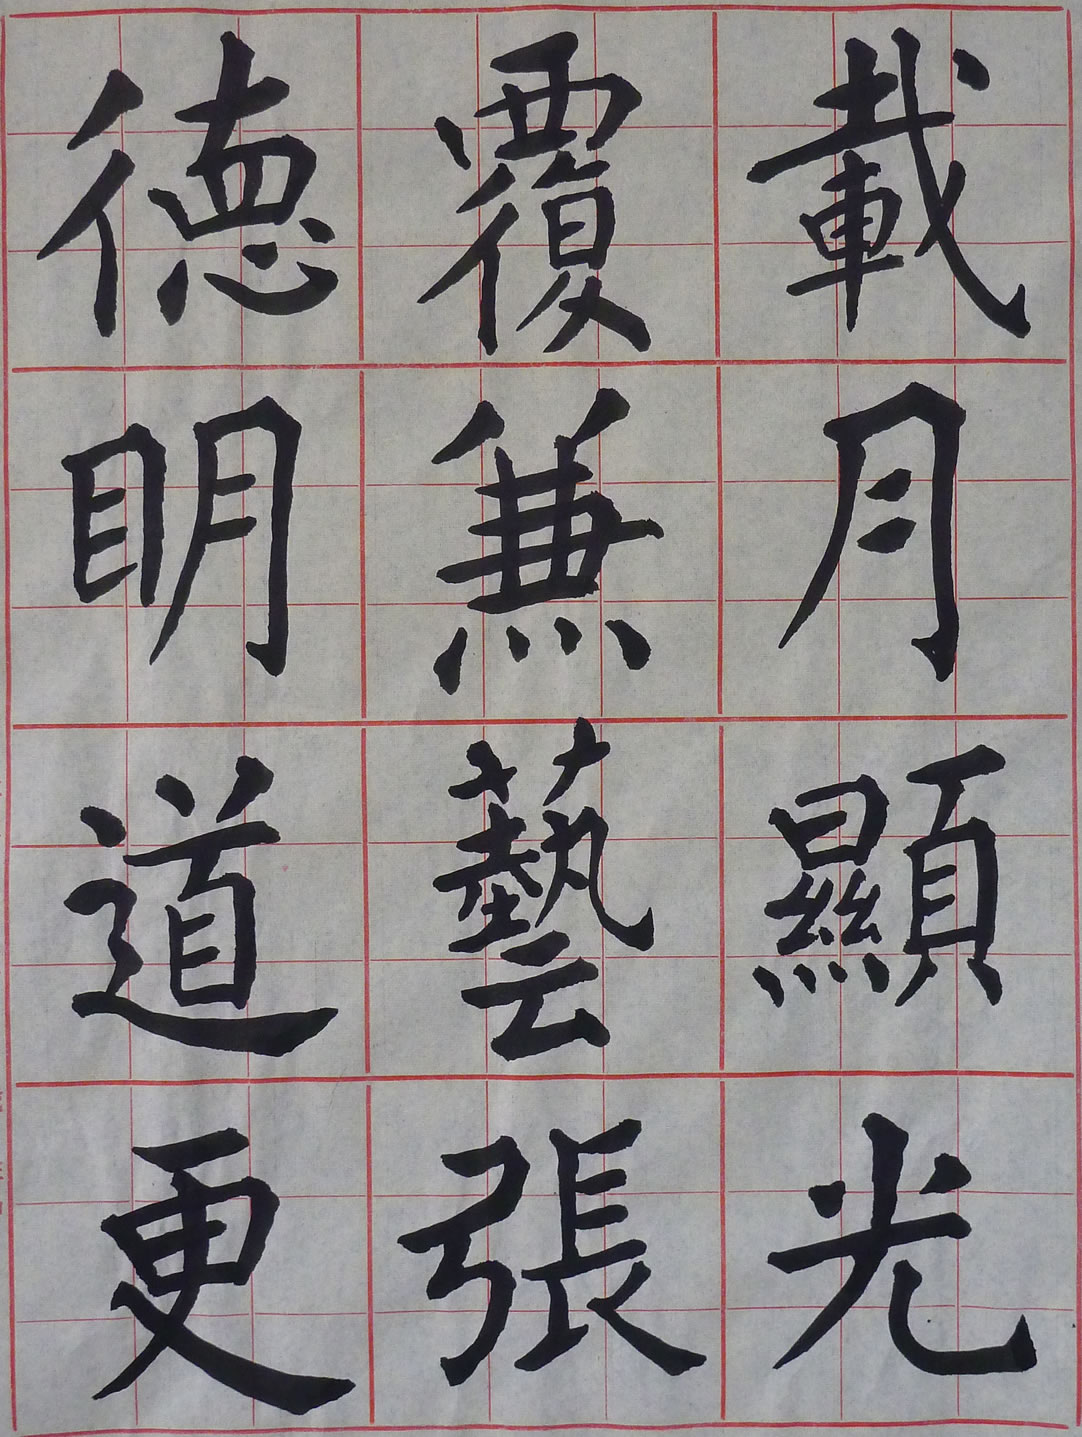 載月顯光
覆兼藝張
德眀道更